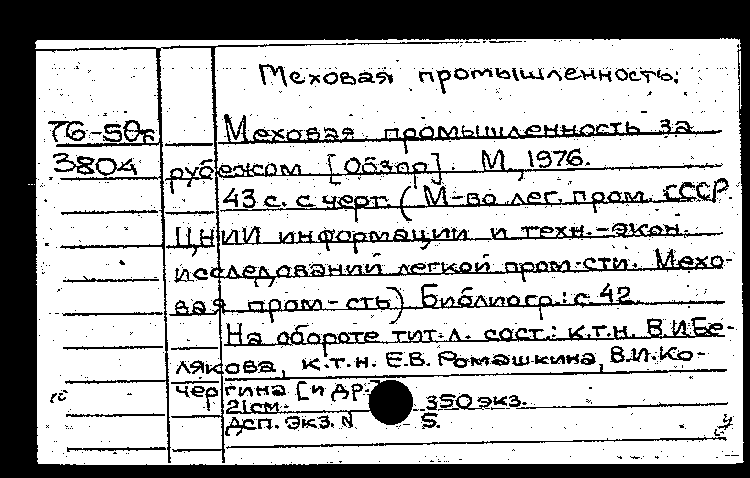 Меховая промышленность.
76-50б
3804
Меховая промышленность за
рубежом [Обзор]. М., 1976.
43 с. с черт. (М-во лег. пром. СССР.
ЦНИИ информации и техн.-экон.
исследований легкой пром-сти. Мехо-
вая пром-сть) Библиогр.: с. 42.
На обороте тит. л. сост.: к.т.н. В.И. Бе-
лякова, к.т.н. Е.В. Ромашкина, В.И. Ко-
чергина [и др.]
21 см. 350 экз.
Дсп. Экз. N 5.